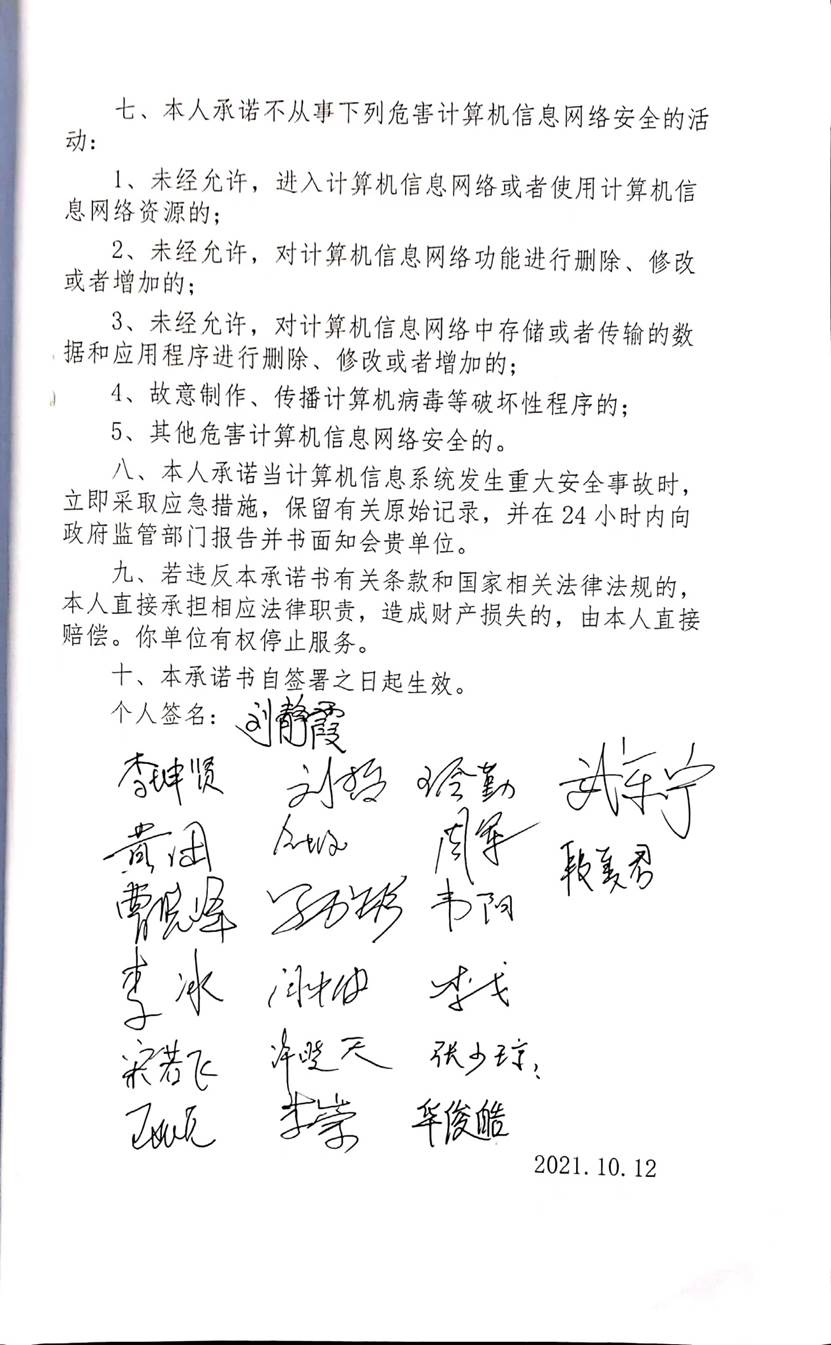 七、本人承诺不从事下列危害计算机信息网络安全的活
动：
1、未经允许，进入计算机信息网络或者使用计算机信
息网络资源的；
2、未经允许，对计算机信息网络功能进行删除、修改
或者增加的；
3、未经允许，对计算机信息网络中存储或者传输的数
据和应用程序进行删除、修改或者增加的；
4、故意制作、传播计算机病毒等破坏性程序的；
5、其他危害计算机信息网络安全的。
八、本人承诺当计算机信息系统发生重大安全事故时，
立即采取应急措施，保留有关原始记录，并在 24 小时内向
政府监管部门报告并书面知会贵单位。
九、若违反本承诺书有关条款和国家相关法律法规的，
本人直接承担相应法律职责，造成财产损失的，由本人直接
赔偿。你单位有权停止服务。
十、本承诺书自签署之日起生效。
个人签名：刘静霞
李坤贤
周军 段美君
韦阳
李冰 李戈
宋若飞 许晓天 张少琼
李崇 毕俊皓
2021.10.12